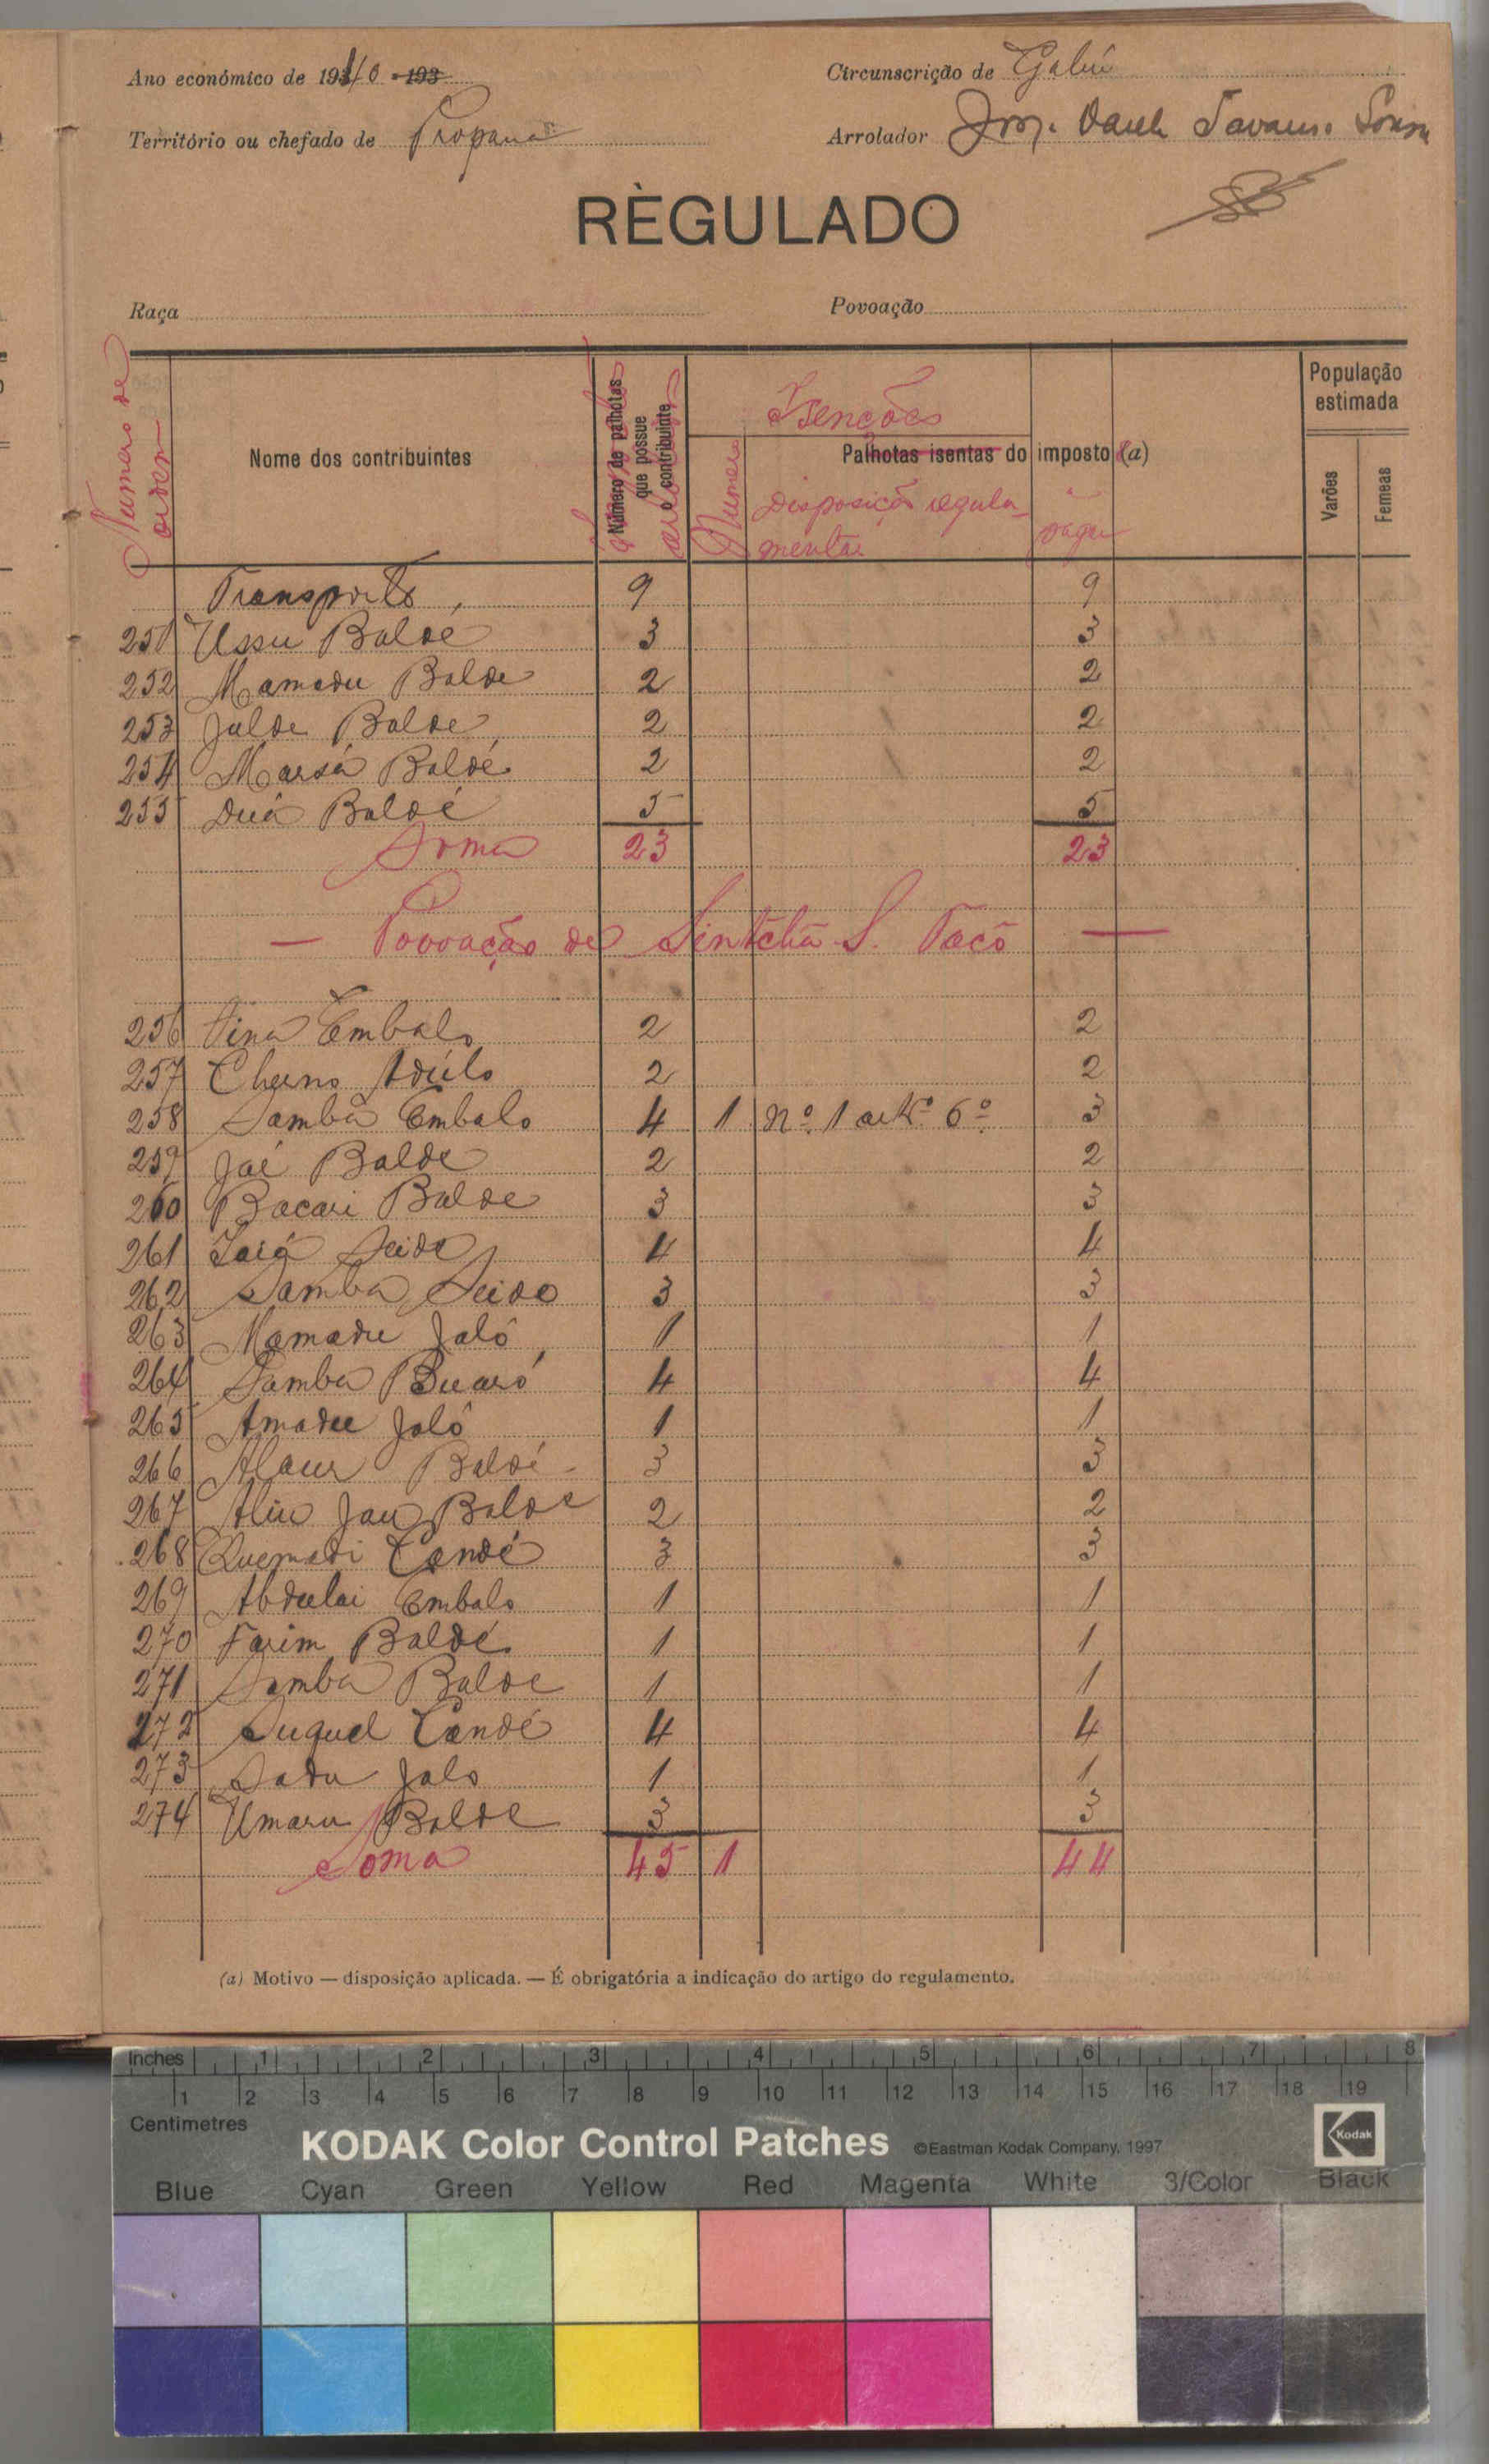 Ano económico de 19
Circunscrição de Gabú
Território ou chefado de Propana
Arrolador
RÈGULADO
Raça
Povoação
Numero de ordem
Nome dos contribuintes
Número de palhotas que possue o contribuinte
Isenções
Palhotas isentas do imposto (a)
Numero
Disposição regulamentar
a pagar
População estimada
Varões
Femeas
Transporte 9 9
251 Ussu Baldé 3 3
252 Mamadu Balde 2 2
253 Julde Balde 2 2
254 Marsá Baldé 2 2
255 Duá Baldé 5 5
Soma 23 23
— Povoação de Sintchã S. Pacô —
256 Embalo 2 2
257 Cherno 2 2
258 Samba Embalo 4 1 nº 1 artº 6º 3
259 Jaé Balde 2 2
260 Bacari Balde 3 3
261 Iaiá Seide 4 4
262 Samba Seide 3 3
263 Mamadu Jaló 1 1
264 Samba Buaró 4 4
265 Amadu Jaló 1 1
266 Baldé 3 3
267 Aliu Jau Balde 2 2
268 Quemadi Candé 3 3
269 Abdulai Embalo 1 1
270 Farim Baldé 1 1
271 Samba Balde 1 1
272 Suquel Candé 4 4
273 Sadu Jalo 1 1
274 Umaru Balde 3 3
Soma 45 1 44
(a) Motivo — disposição aplicada. — É obrigatória a indicação do artigo do regulamento.
Inches 1 2 3 4 5 6 7 8
1 2 3 4 5 6 7 8 9 10 11 12 13 14 15 16 17 18 19
Centimetres
KODAK Color Control Patches ©Eastman Kodak Company, 1997 Kodak
Blue Cyan Green Yellow Red Magenta White 3/Color Black